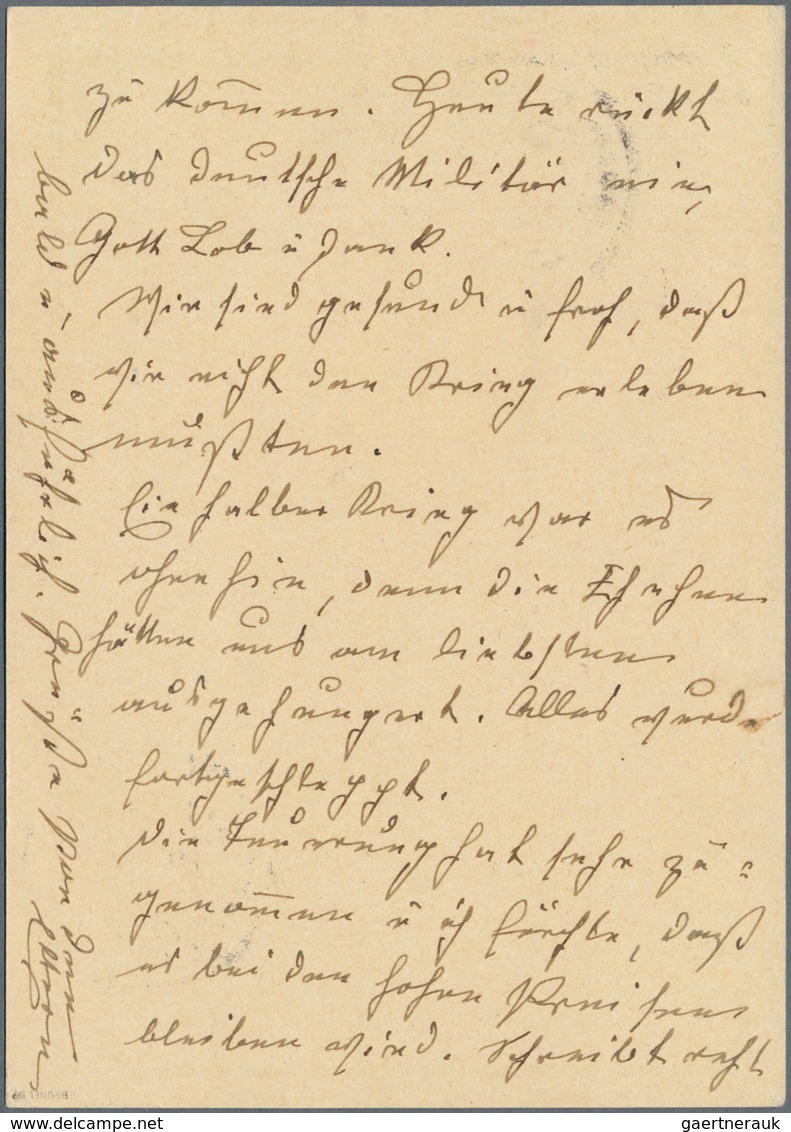 zu kom̅en. Heute rückt
das deutsche Militär ein,
Gott Lob u Dank.
Wir sind gesund u froh, daß
wir nicht den Krieg erleben
mußten.
Ein halber Krieg war es
ohnehin, denn die Tschechen
hätten uns am liebsten
ausgehungert. Alles wurde
fortgeschleppt.
Die Teuerung hat sehr zu=
genom̅en u ich fürchte, daß
es bei den hohen Preisen
bleiben wird. Schreibt recht
bald u ausführlich. Grüße von den
Eltern
BRÜNEL 
gaertnerauk